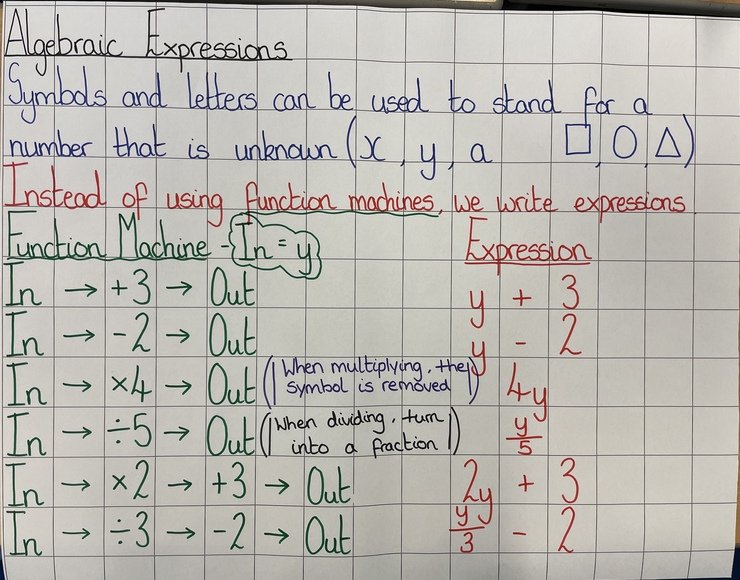 Algebraic Expressions
Symbols and letters can be used to stand for a
number that is unknown (x, y, a □, ○, △)
Instead of using function machines, we write expressions
Function Machine - In = y Expression
In → +3 → Out y + 3
In → -2 → Out y - 2
In → ×4 → Out (When multiplying, the symbol is removed) 4y
In → ÷5 → Out (When dividing, turn into a fraction) y/5
In → ×2 → +3 → Out 2y + 3
In → ÷3 → -2 → Out y/3 - 2